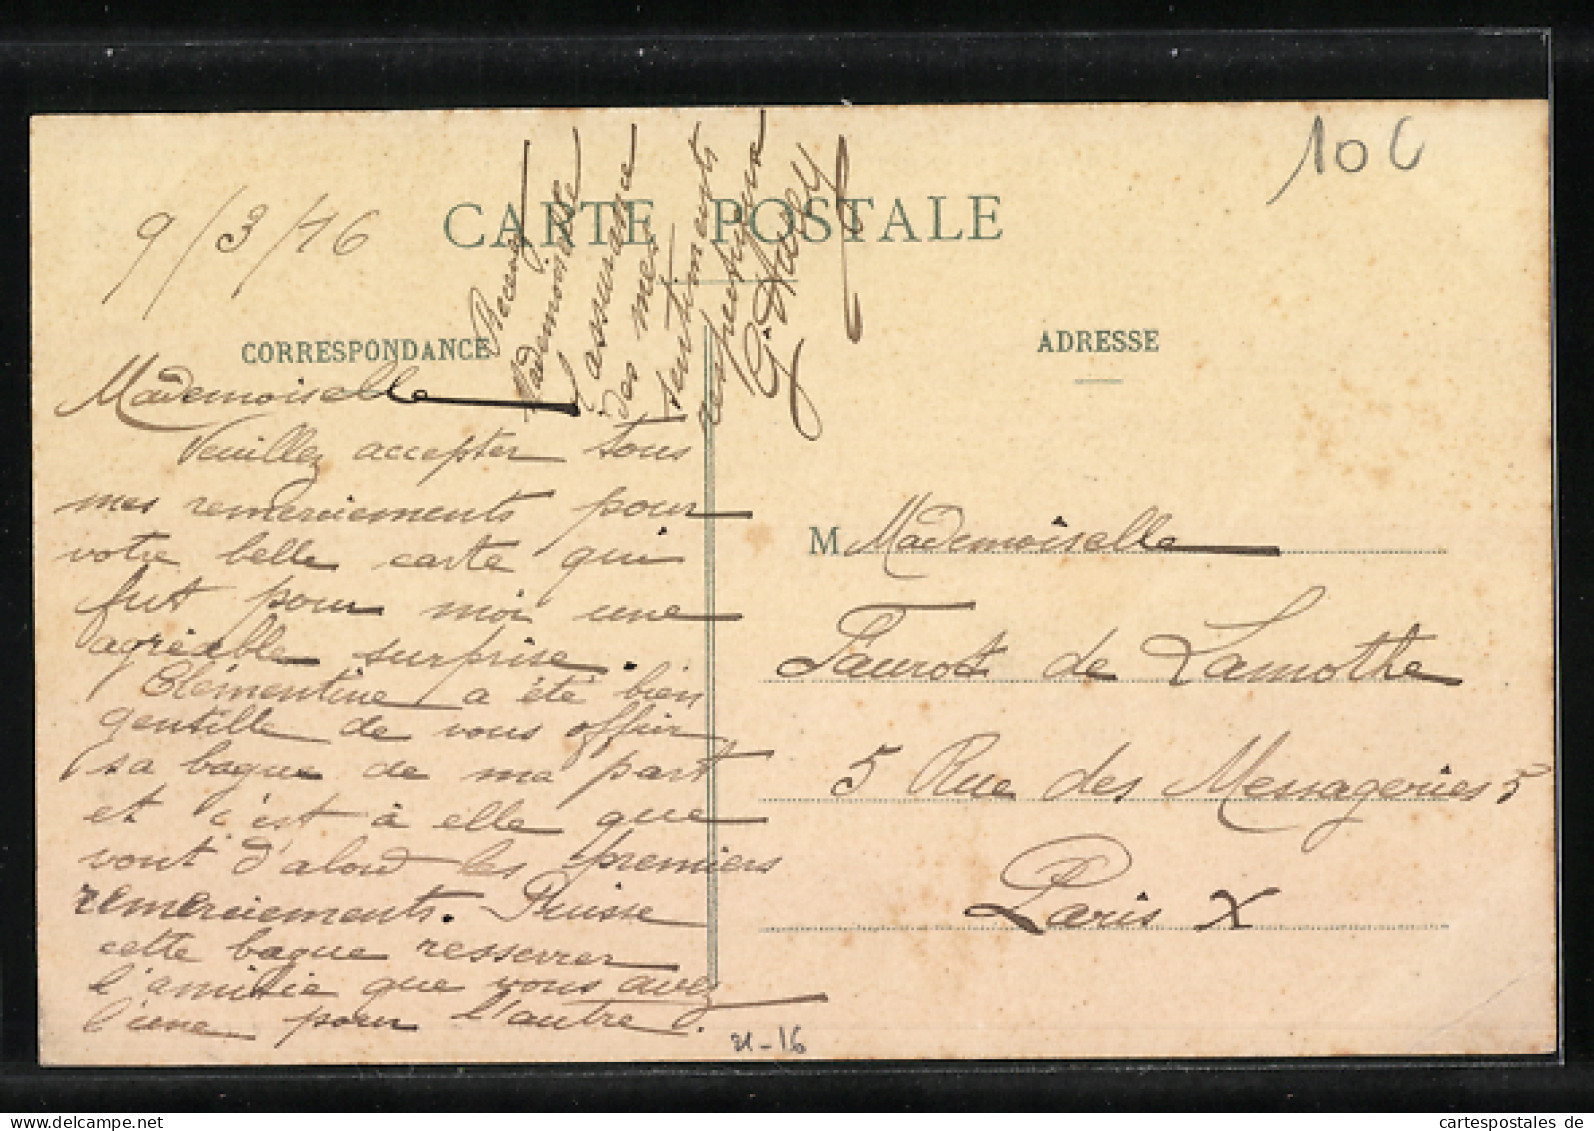 10 C
9/3/16
CARTE POSTALE
CORRESPONDANCE
Mademoiselle
Veuillez accepter tous
mes remerciements pour
votre belle carte qui
fut pour moi une
agréable surprise.
Clémentine a été bien
gentille de vous offrir
sa bague de ma part
et c'est à elle que
vont d'abord les premiers
remerciements. Puisse
cette bague resserrer
l'amitie que vous avez
l'une pour l'autre.
Recevez
Mademoiselle
l'assurance
des mes
sentiments
respectueux
ADRESSE
M Mademoiselle
Faurot de Lamothe
5 Rue des Messageries 5
Paris X
21-16
cartespostales de